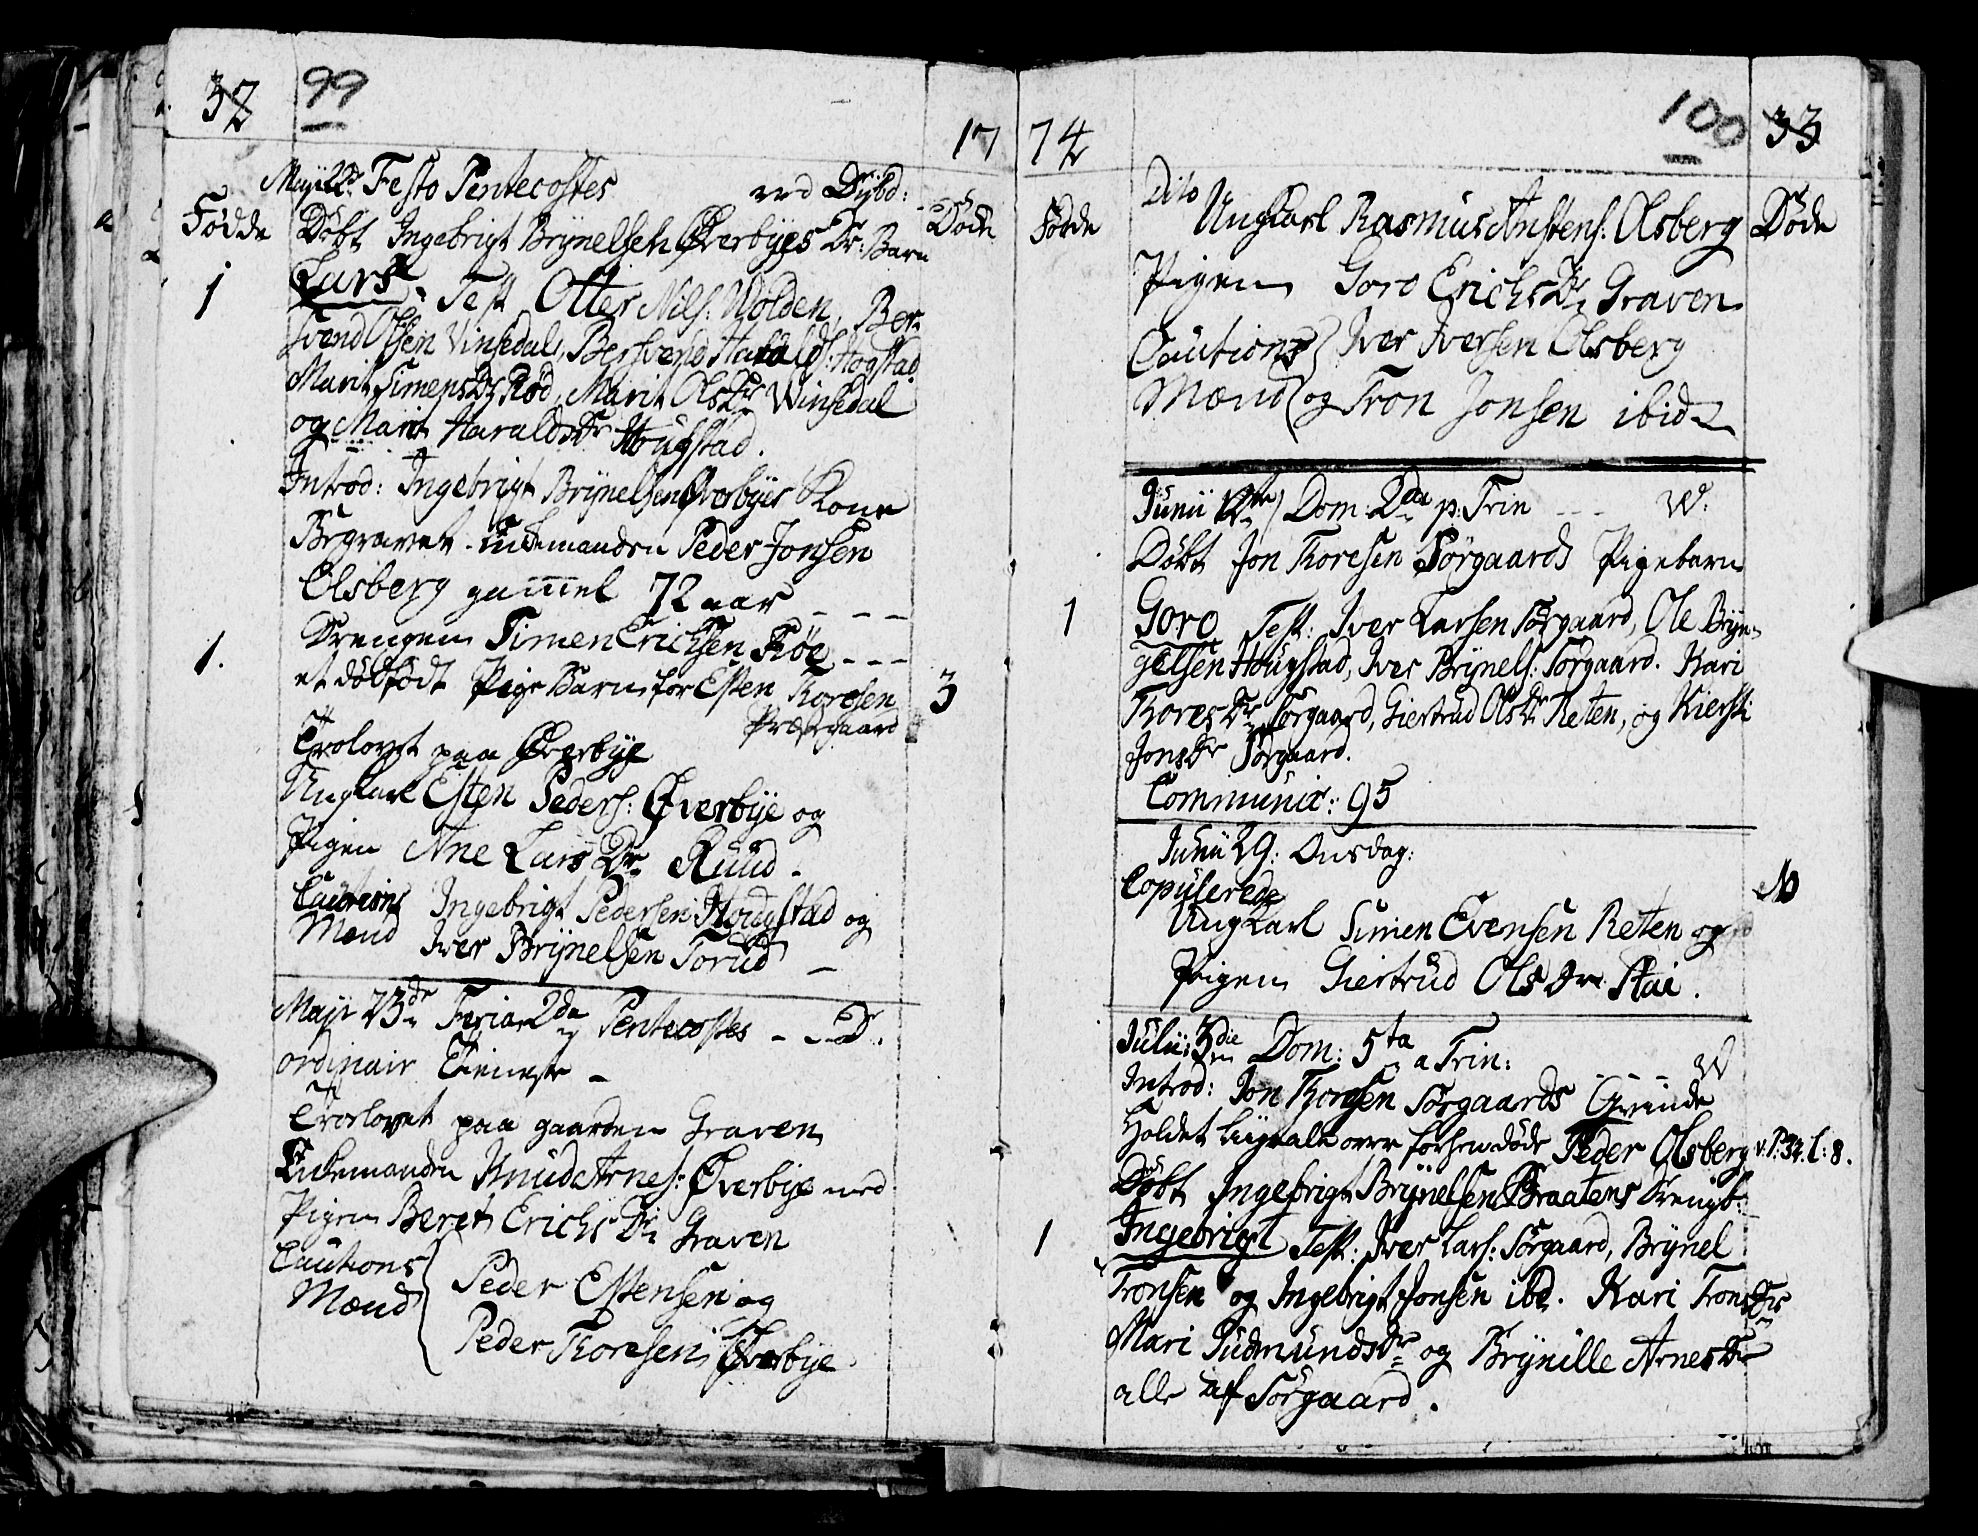 32 99
17
Maji 22de Festo Pentecostes ved Dybd:
Fødde Døde
Døbt Ingebrigt Brynelsen Øverbyes Dr: Barn
1 Lars. Test Otter Nils: Wolden, Ber-
svend Olsen Vinsedal, Bersvend Haralds: Hogstad
Marit Simens Dr Röd, Marit Ols Dr Winsedal
og Marit Haralds Dr Hougstad.
Introd: Ingebrigt Brynelsen Øverbyes Kone
Begravet Enkemanden Peder Jonsen
Olsberg gammel 72 aar - - -
1. Drengen Simen Erichsen Röe - - -
et dödfödt Pige Barn for Esten Thoresen 3
Præstgaard
Trolovet paa Øverbye
Ungkarl Esten Peders: Øverbye og
Pigen Ane Lars Dr Ruud.
Cautions Ingebrigt Pedersen Hougstad og
Mænd Iver Brynelsen Torud -
Maji 23de Feria 2da Pentecostes - - D.
ordinair Tieneste -
Trolovet paa gaarden Graven
Enkemanden Knud Arnes: Øverbye med
Pigen Beret Erichs Dr Graven
Cautions Peder Estensen og
Mænd Peder Thoresen Øverbye.
74 100 33
Fødde Døde
Dito
Ungkarl Rasmus Austens: Olsberg
Pigen Goro Erichs Dr Graven
Cautions Iver Iversen Olsberg
Mænd og Tron Jonsen ibid
Junii 12te Dom: 2da p: Trin - - - W:
Döbt Jon Thoresen Sörgaards Pigebarn
1 Goro Test: Iver Larsen Sörgaard, Ole Bryn-
gelsen Hougstad, Iver Brynels: Sörgaard. Kari
Thores Dr Sörgaard, Giertrud Ols Dr Reten, og Kiersti
Jons Dr Sörgaard.
Communic: 95
Junii 29: Onsdag:
Copulerede
Ungkarl Simen Evensen Reten og
Pigen Giertrud Ols Dr Stai.
Julii 3die Dom: 5ta a Trin: - - - W
Introd: Jon Thoresen Sörgaards Qvinde
Holdet Liigtale over forhen döde Peder Olsberg v: P: 32. l: 8.
Döbt Ingebrigt Brynelsen Braatens Drengb:
1 Ingebrigt Test: Iver Lars: Sörgaard, Brynel
Tronsen og Ingebrigt Jonsen ibd. Kari Trons Dr
Mari Gudmunds Dr og Brynille Arnes Dr
alle af Sörgaard.